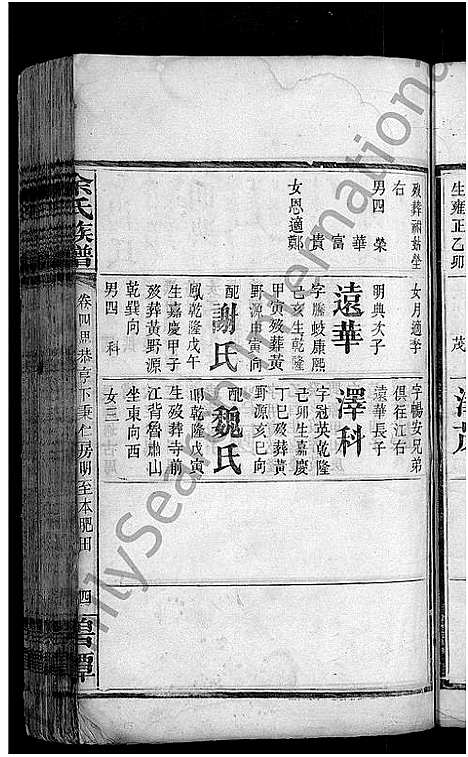 生雍正乙卯
茂
歿葬祖姑塋
右
男四 榮
華
富
貴
女恩適鄭
女月適李
明典次子
遠華
字勝岐康熙
己亥生乾隆
甲寅歿葬黃
野源申寅向
配謝氏
乾隆戊午
生嘉慶甲子
歿葬黃野源
乾巽向
男四 科
字暢安兄弟
俱徃江右
遠華長子
澤科
字冠英乾隆
己卯生嘉慶
丁巳歿葬黃
野源亥巳向
配魏氏
乾隆戊寅
生歿葬寺前
江背魯肅山
坐東向西
女三
余氏族譜
卷四甲恭亭下秉仁房明至本肥田
四
FamilySearch International